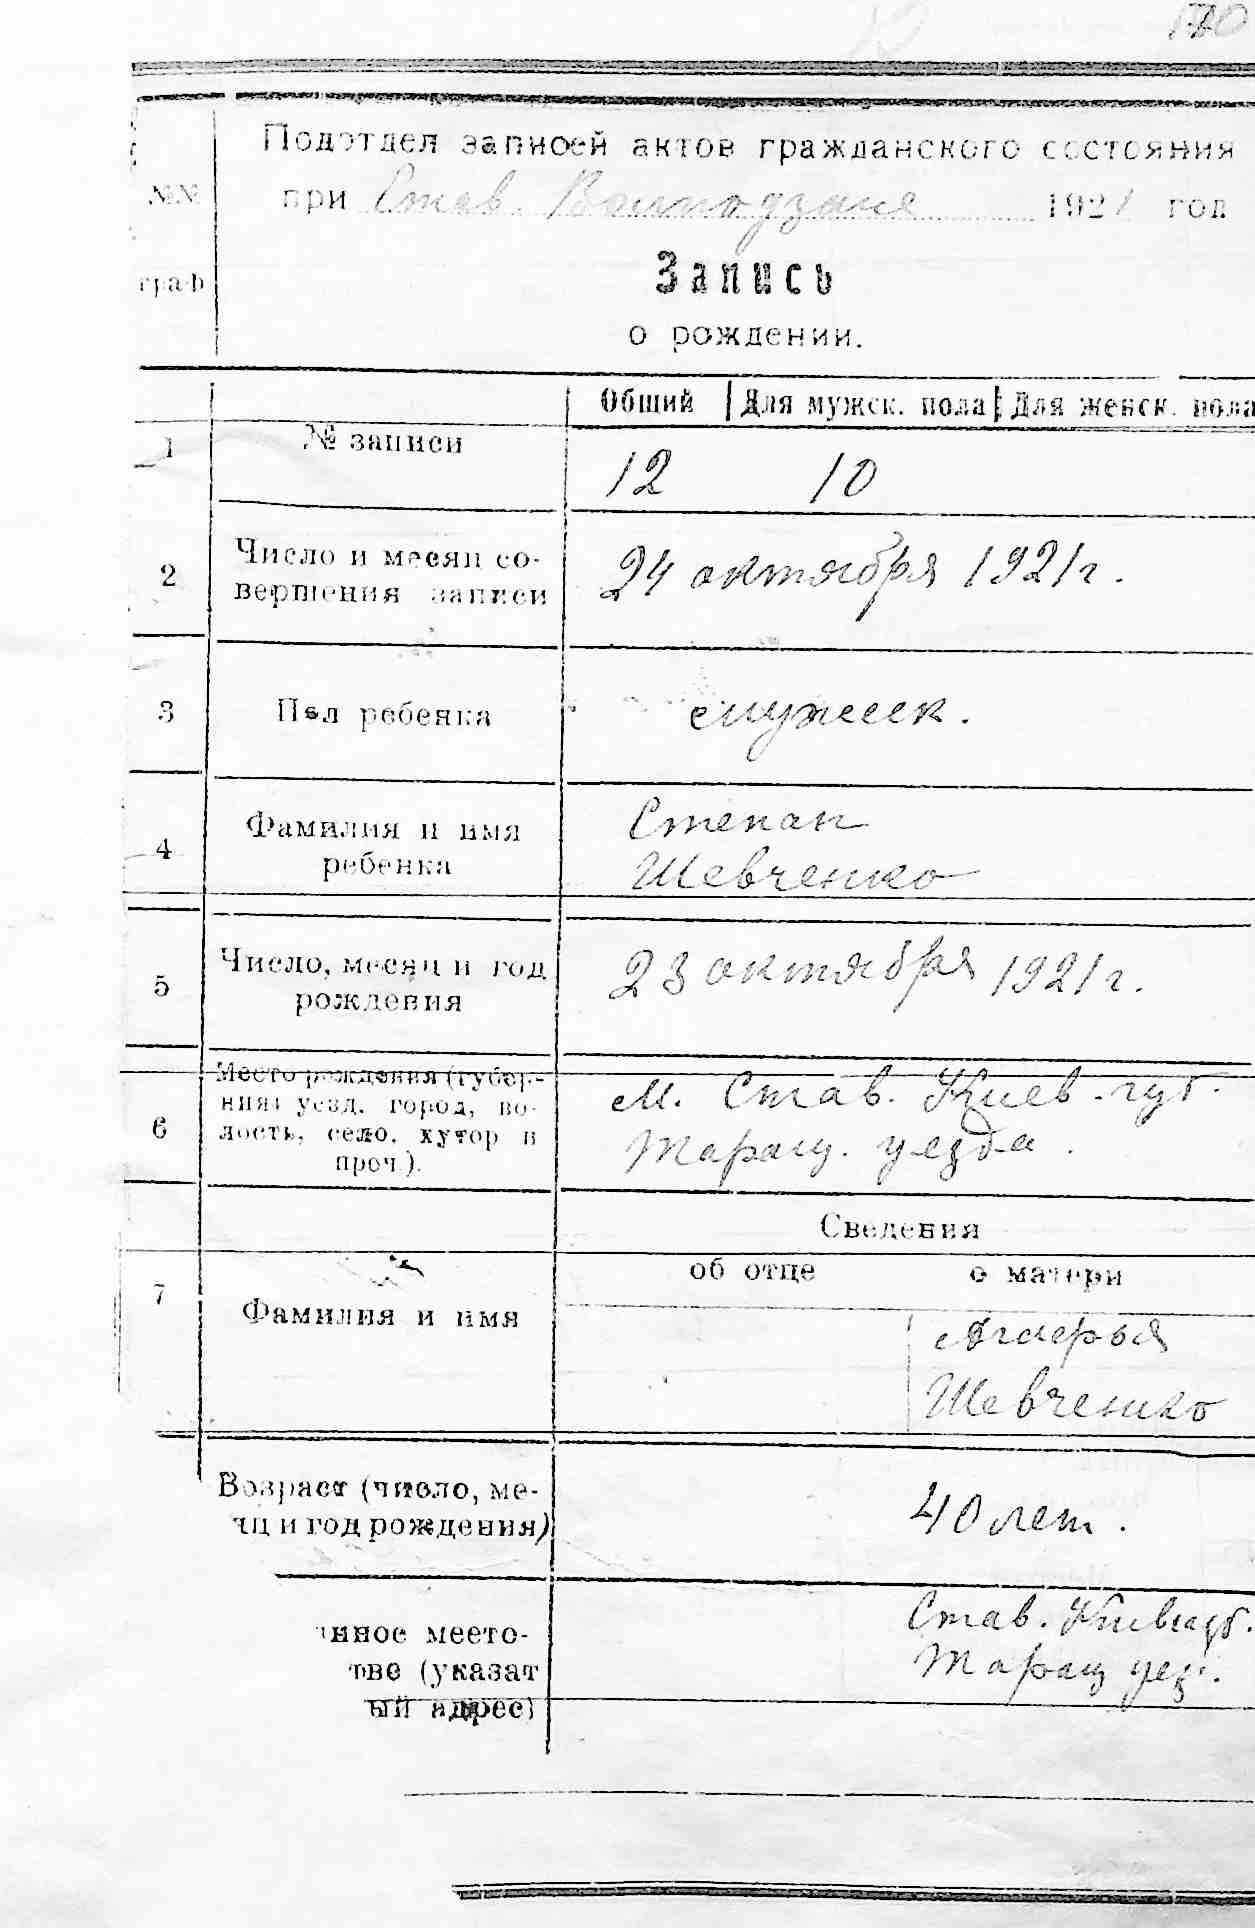 Подотдел записей актов гражданского состояния
при Став. 1921 год
№№
граф
Запись
о рождении.
Общий Для мужск. пола Для женск. пола
1 № записи 12 10
2 Число и месяц со-
вершения записи
24 октября 1921 г.
3 Пол ребенка мужеск.
4 Фамилия и имя
ребенка
Степан
Шевченко
5 Число, месяц и год
рождения
23 октября 1921 г.
6 Место рождения (губер-
ния, уезд, город, во-
лость, село, хутор и
проч.).
М. Став. Киев. губ.
Таращ. уезда.
Сведения
об отце о матери
7 Фамилия и имя
Шевченко
Возраст (число, ме-
яц и год рождения)
40 лет.
нное место-
тве (указат
ый адрес)
Став. Киев губ.
Таращ уез.